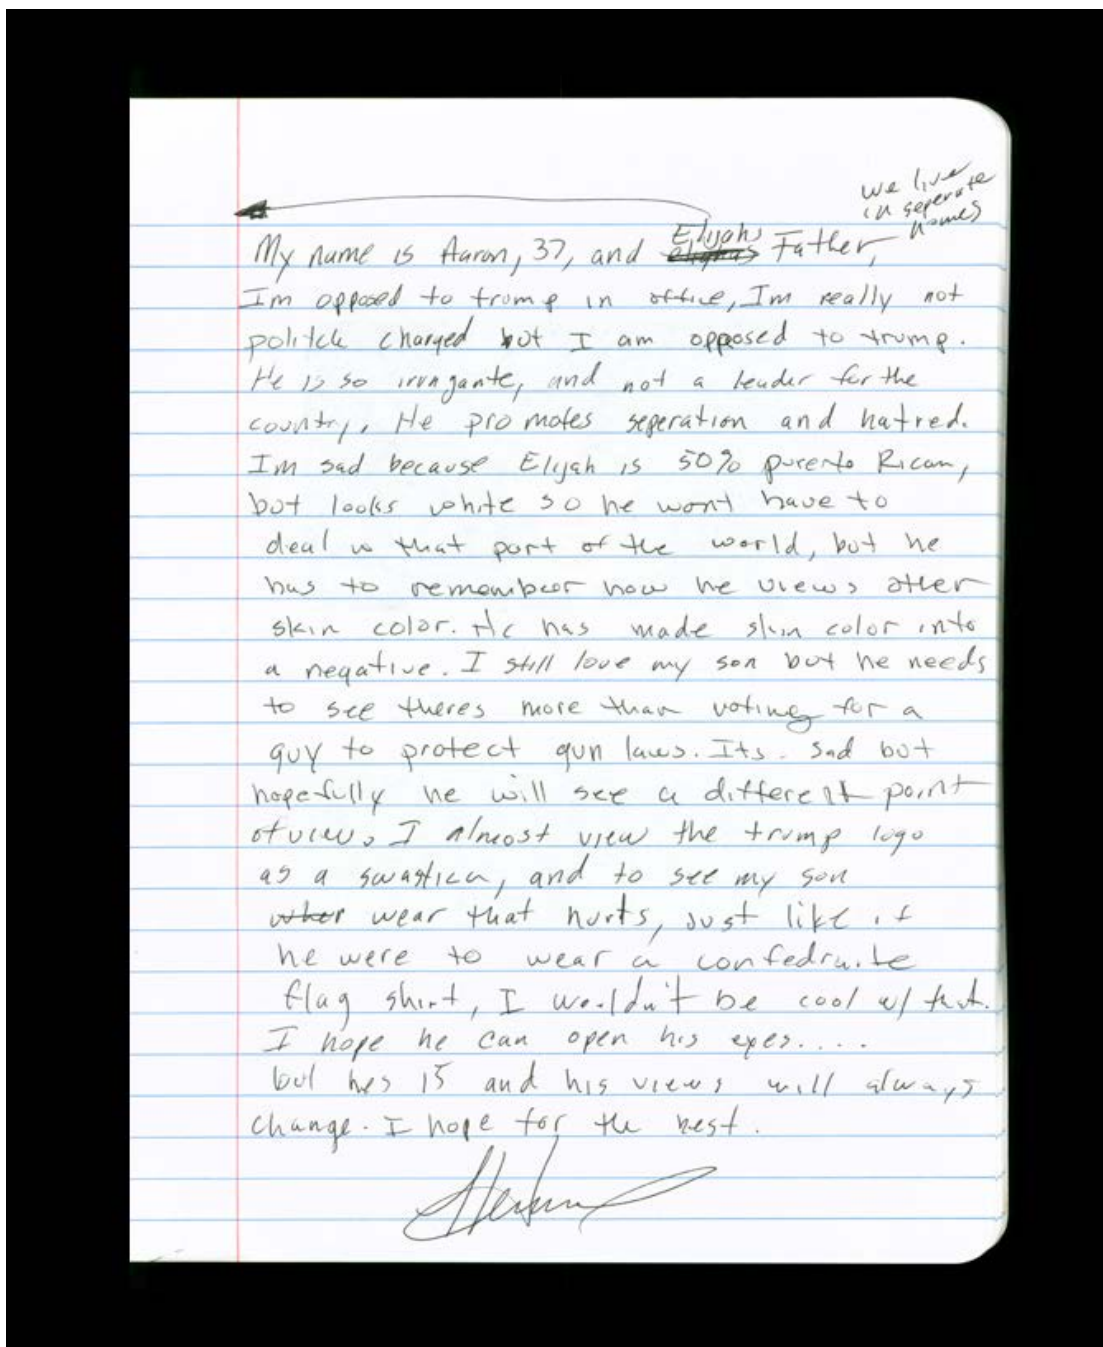 we live
in seperate
homes
Elijahs
My name is Aaron, 37, and Father,
Im opposed to trump in office, Im really not
politcle charged but I am opposed to trump.
He is so irrugante, and not a leader for the
country, He promotes seperation and hatred.
Im sad because Elijah is 50% puerto Rican,
but looks white so he wont have to
deal w that part of the world, but he
has to remember how he views other
skin color. He has made skin color into
a negative. I still love my son but he needs
to see theres more than voting for a
guy to protect gun laws. Its. sad but
hopefully he will see a different point
of view. I almost view the trump logo
as a swastica, and to see my son
wear that hurts, Just like if
he were to wear a confedraite
flag shirt, I wouldn't be cool w/ that.
I hope he can open his eyes....
but hes 15 and his views will always
change. I hope for the best.